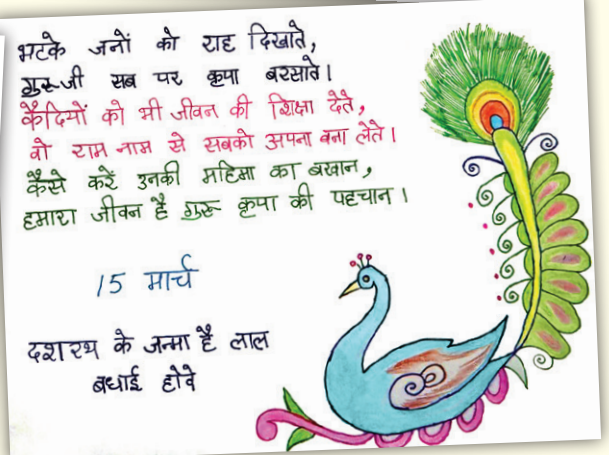 भटके जनों को राह दिखाते,
गुरुजी सब पर कृपा बरसाते।
कैदियों को भी जीवन की शिक्षा देते,
वो राम नाम से सबको अपना बना लेते।
कैसे करें उनकी महिमा का बखान,
हमारा जीवन है गुरु कृपा की पहचान।
15 मार्च
दशरथ के जन्मा है लाल
बधाई होवे